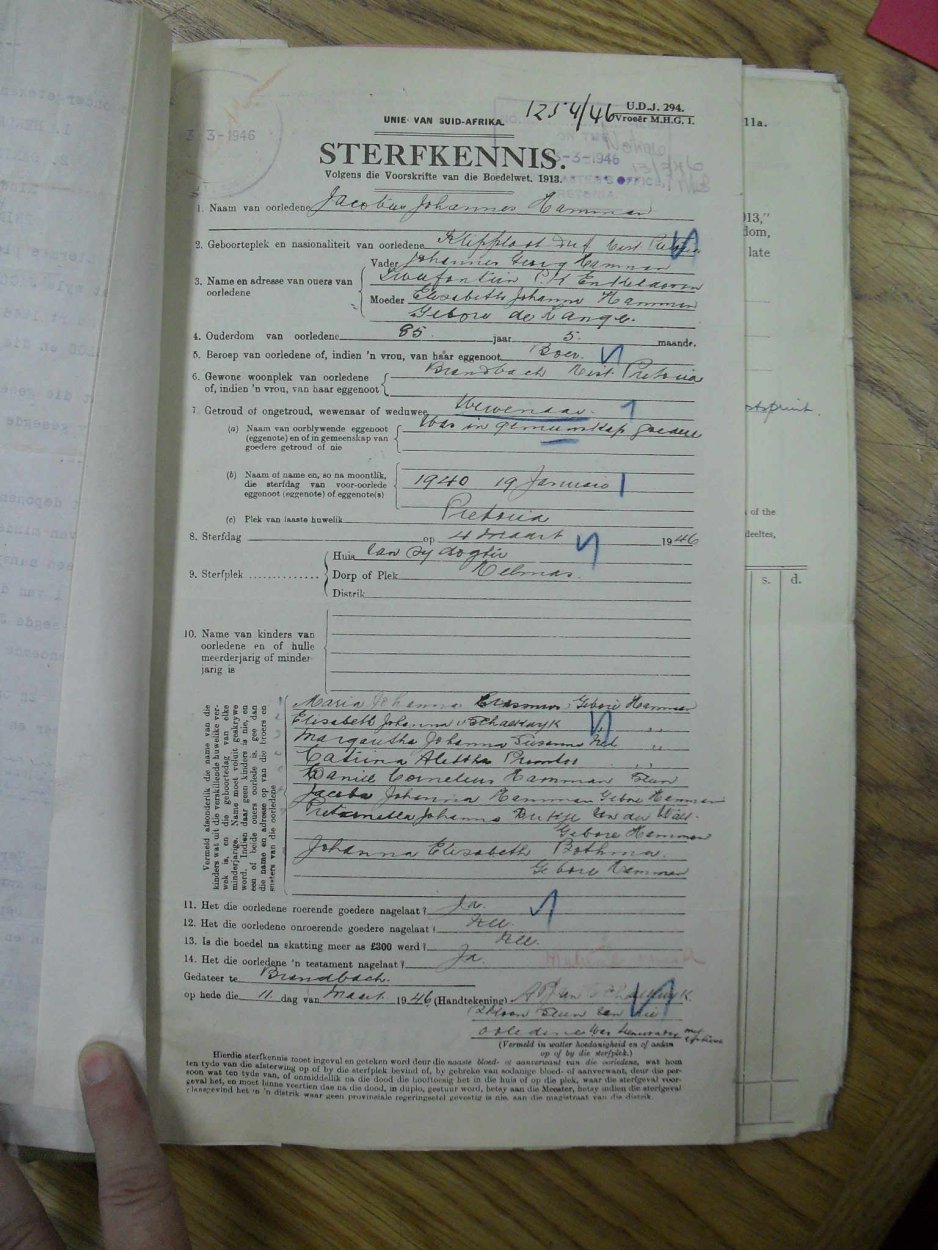 1254/46
U.D.J. 294.
Vroeër M.H.G. I.
UNIE VAN SUID-AFRIKA.
3-3-1946
-3-1946
STERFKENNIS.
Volgens die Voorskrifte van die Boedelwet, 1913.
1. Naam van oorledene Jacobus Johannes Hamman
2. Geboorteplek en nasionaliteit van oorledene Klipploat
3. Name en adresse van ouers van oorledene
Vader Johannes Georg Hamman
P.K. Enkeldoorn
Moeder Elisabeth Johanna Hamman
Gebore de Lange.
4. Ouderdom van oorledene 85 jaar 5 maande.
5. Beroep van oorledene of, indien 'n vrou, van haar eggenoot Boer.
6. Gewone woonplek van oorledene of, indien 'n vrou, van haar eggenoot Brandbach Dist Pretoria
7. Getroud of ongetroud, wewenaar of weduwee Wewenaar.
(a) Naam van oorblywende eggenoot (eggenote) en of in gemeenskap van goedere getroud of nie Was in gemeenskap goedere
(b) Naam of name en, so na moontlik, die sterfdag van voor-oorlede eggenoot (eggenote) of eggenote(s) 1940 19 Januarie
(c) Plek van laaste huwelik Pretoria
8. Sterfdag op 4 Maart 1946
9. Sterfplek
Huis van sy dogter
Dorp of Plek Delmas.
Distrik
10. Name van kinders van oorledene en of hulle meerderjarig of minderjarig is
Vermeld afsonderlik die name van die kinders wat uit die verskillende huwelike verwek is, en die geboortedag van elke minderjarige. Name moet voluit geskrywe word. Indien daar geen kinders is nie, en een of beide ouers oorlede is, gee dan die name en adresse op van die broers en susters van die oorledene
Maria Johanna Erasmus Gebore Hamman
Elisabeth Johanna v Schalkwyk ,,
Margaretha Johanna Susanna Nel ,,
Catrina Aletta ,,
Daniel Cornelius Hamman Seun
Jacoba Johanna Hamman Gebore Hamman
Johanna van der Walt
Gebore Hamman
Johanna Elisabeth Bothma.
Gebore Hamman
11. Het die oorledene roerende goedere nagelaat? Ja.
12. Het die oorledene onroerende goedere nagelaat? Nee.
13. Is die boedel na skatting meer as £300 werd? Nee.
14. Het die oorledene 'n testament nagelaat? Ja.
Gedateer te Brandbach.
op hede die 11 dag van Maart 1946 (Handtekening)
Skoon Seun van die
oorledene was
(Vermeld in watter hoedanigheid en of aldan op of by die sterfplek.)
Hierdie sterfkennis moet ingevul en geteken word deur die naaste bloed- of aanverwant van die oorledene, wat hom
ten tyde van die afsterwing op of by die sterfplek bevind of, by gebreke van sodanige bloed- of aanverwant, deur die persoon
wat ten tyde van, of onmiddellik na die dood die hooftoesig het in die huis of op die plek, waar die sterfgeval voorgeval
het, en moet binne veertien dae na die dood, in duplo, gestuur word, betsy aan die Meester, betsy indien die sterfgeval
plaasgevind het in 'n distrik waar geen provinsiale regeringsetel gevestig is nie, aan die magistraat van die distrik.
11a.
913,"
dom,
late
of the
s. d.